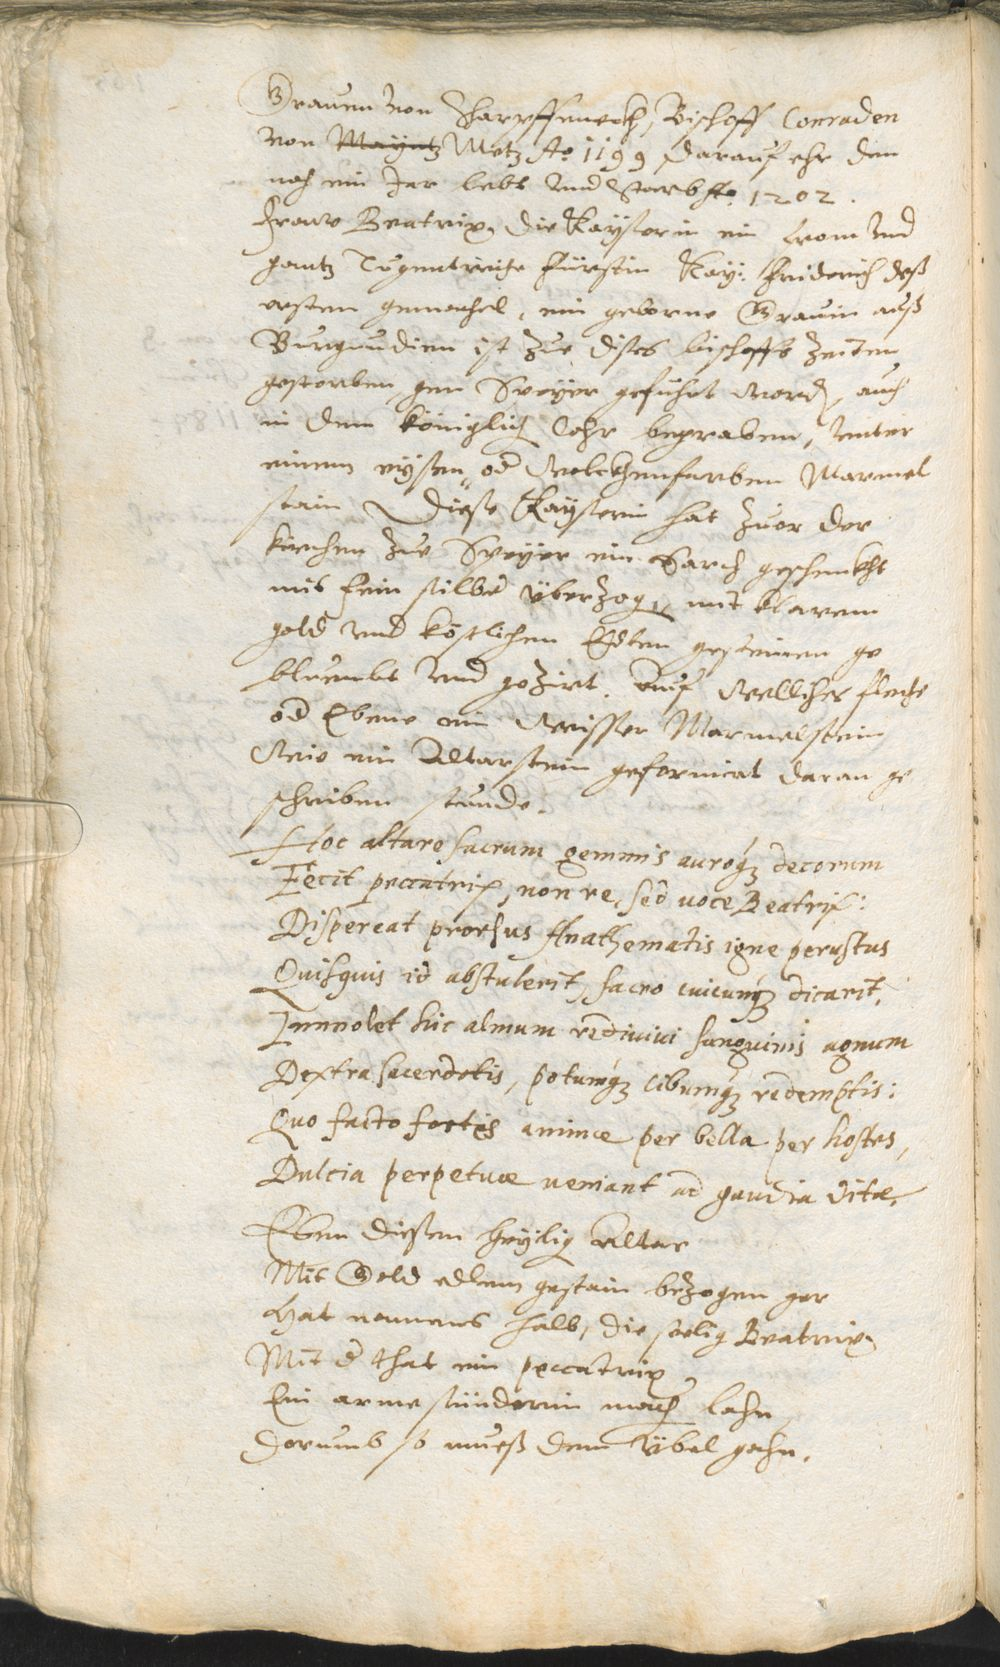 Grauen von Scharpffeneckh, Bischoff Conraden
von Mayntz Metz Ao 1199 darauf ehr den
noch ein Jar lebt vnd Starb Ao 1202.
Fraw Beatrix, die Kayserin ein from vnd
gantz Tugentreiche Fürstin Kay: Friderich deß
ersten gemachel, ein geborne Grauin auß
Burgundien ist zue dises bischoffs zeiten
gestorben, gen Speyer geführt word, auch
in dem königlich Cohr begraben, vnter
einem eyßen od Wolckhenfarben Marmel
stain Dieße Kayserin hat zuor der
kirchen zue Speyer ein Sarch geschenckht
mit fein silber überzog, mit klarem
gold vnd köstlichen Edlen gesteinen ge
bluembt vnd gezirt. Auf Wellicher fleche
od Ebene ein Weisser Marmelstein
Wie ein Altarstein geformirt daran ge
schriben stunde.
Hoc altare sacrum gemmis auroq; decorum
Fecit peccatrix, non re, sed uoce Beatrix:
Dispereat prorsus Anathematis igne perustus
Quisquis id abstulerit, sacro cuicunq; dicarit,
Immolet hic almum rediuiui sanguinis agnum
Dextra sacerdotis, potumq; cibumq; redemptis:
Quo facto fortes animæ per bella per hostes,
Dulcia perpetuæ ueniant ad gaudia vitæ,
Eben dießen heylig Altar
Mit Gold edlem gestain bezogen gar
Hat nammens halb, die seelig Beatrix,
Mit d that ein peccatrix
Ein arme sünderin mach lahn
Dorumb so mueß dem übel gahn.